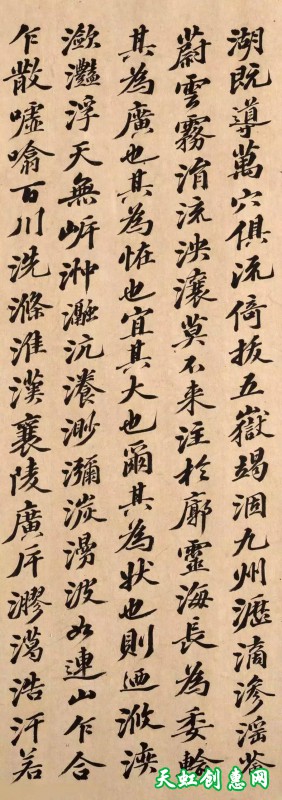 湖既導萬穴俱流倚拔五嶽竭涸九州瀝滴滲淫薈
蔚雲霧涓流泱瀼莫不来注於廓靈海長為委輸
其為廣也其為恠也宜其大也爾其為狀也則迺浟湙
瀲灩浮天無岸沖瀜沆瀁渺瀰湠漫波如連山乍合
乍散噓噏百川洗滌淮漢襄陵廣斥㵧浩汗若
天虹创惠网